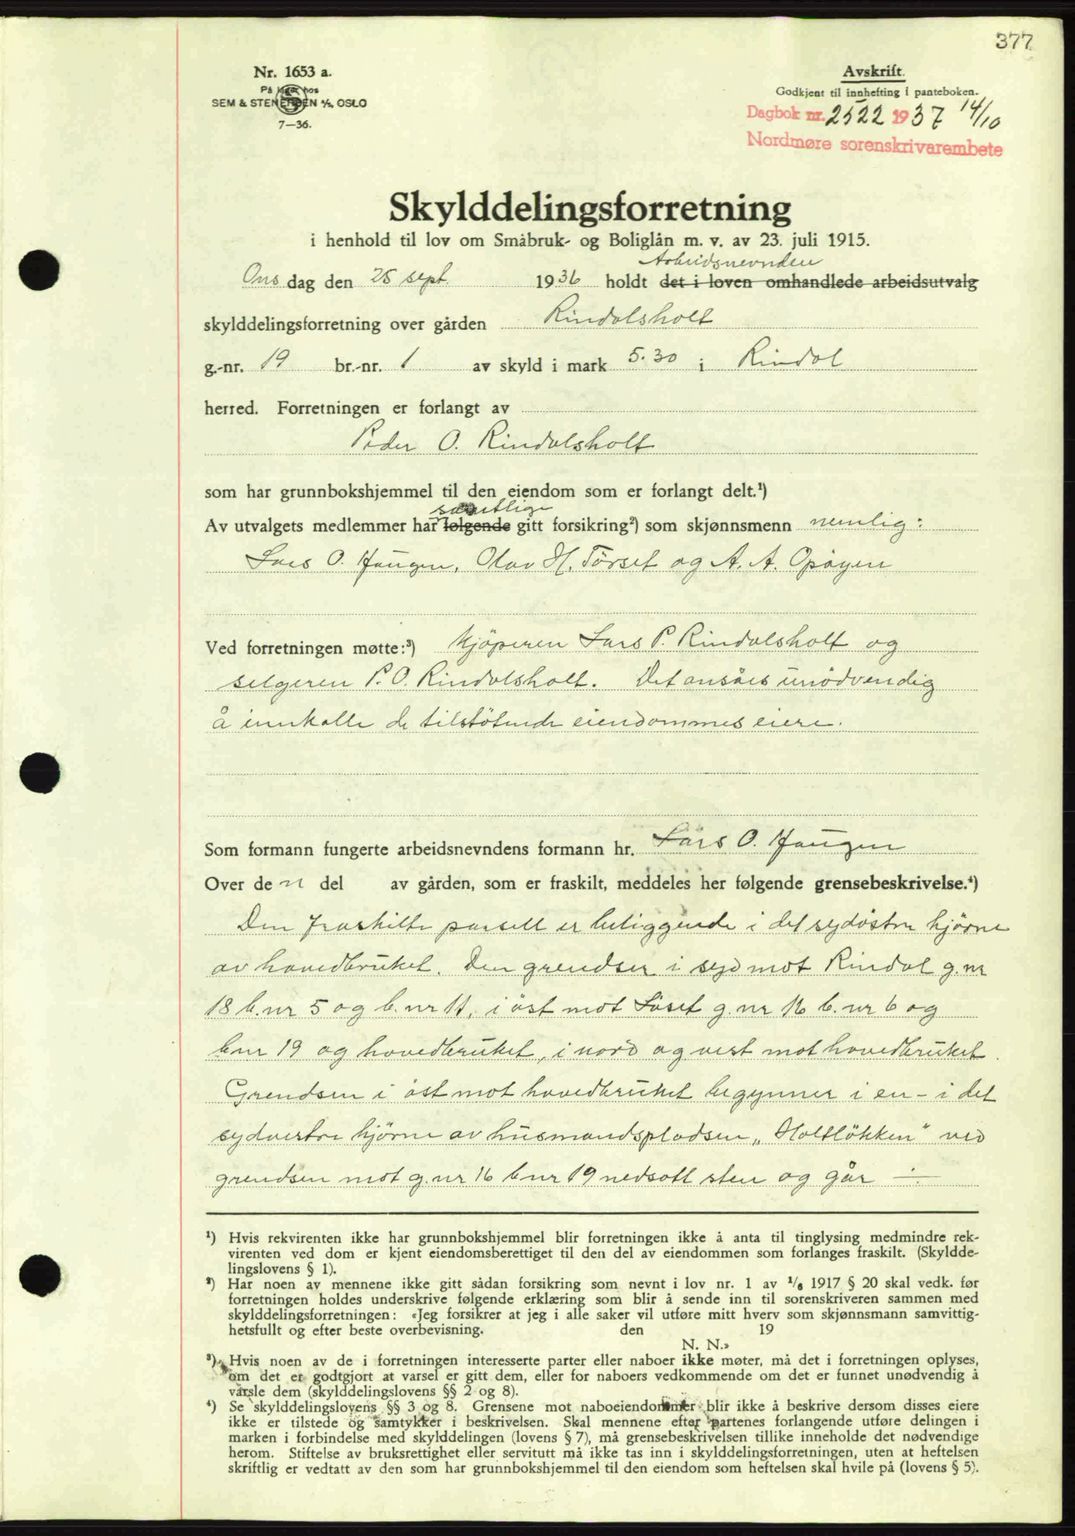 377
Nr. 1653 a.
På lager hos
SEM & STENERSEN A/S, OSLO
7—36.
Avskrift.
Godkjent til innhefting i panteboken.
Dagbok nr. 2522 1937 14/10
Nordmøre sorenskrivarembete
Skylddelingsforretning
i henhold til lov om Småbruk- og Boliglån m. v. av 23. juli 1915.
Arbeidsnevnden
Ons dag den 25 sept. 1936 holdt det i loven omhandlede arbeidsutvalg
skylddelingsforretning over gården Rindalsholt
g.-nr. 19 br.-nr. 1 av skyld i mark 5.30 i Rindal
herred. Forretningen er forlangt av
Peder O. Rindalsholt
som har grunnbokshjemmel til den eiendom som er forlangt delt.¹)
samtlige
Av utvalgets medlemmer har følgende gitt forsikring²) som skjønnsmenn nemlig:
Lars O. Haugen, Olav H. Törset og A. A. Opöyen
Ved forretningen møtte:³) Kjöperen Lars P. Rindalsholt og
selgeren P. O. Rindalsholt. Det ansåes unödvendig
å innkalle de tilstötende eiendommes eiere.
Som formann fungerte arbeidsnevndens formann hr. Lars O. Haugen
Over den del av gården, som er fraskilt, meddeles her følgende grensebeskrivelse.⁴)
Den fraskilte parsell er beliggende i det sydöstre hjörne
av hovedbruket. Den grendser i syd mot Rindal g.nr
18 b.nr 5 og b.nr 11, i öst mot Löset g.nr 16 b.nr 6 og
b.nr 19 og hovedbruket, i nord og vest mot hovedbruket.
Grendsen i öst mot hovedbruket begynner i en – i det
sydvestre hjörne av husmandspladsen „Holtlökken" ved
grendsen mot g.nr 16 b.nr 19 nedsatt sten og går ÷
¹) Hvis rekvirenten ikke har grunnbokshjemmel blir forretningen ikke å anta til tinglysing medmindre rek-
virenten ved dom er kjent eiendomsberettiget til den del av eiendommen som forlanges fraskilt. (Skyldde-
lingslovens § 1).
²) Har noen av mennene ikke gitt sådan forsikring som nevnt i lov nr. 1 av 1/6 1917 § 20 skal vedk. før
forretningen holdes underskrive følgende erklæring som blir å sende inn til sorenskriveren sammen med
skylddelingsforretningen: «Jeg forsikrer at jeg i alle saker vil utføre mitt hverv som skjønnsmann samvittig-
hetsfullt og efter beste overbevisning. den 19
N. N.»
³) Hvis noen av de i forretningen interesserte parter eller naboer ikke møter, må det i forretningen oplyses,
om det er godtgjort at varsel er gitt dem, eller for naboers vedkommende om det er funnet unødvendig å
varsle dem (skylddelingslovens §§ 2 og 8).
⁴) Se skylddelingslovens §§ 3 og 8. Grensene mot naboeiendommer blir ikke å beskrive dersom disses eiere
ikke er tilstede og samtykker i beskrivelsen. Skal mennene efter partenes forlangende utføre delingen i
marken i forbindelse med skylddelingen (lovens § 7), må grensebeskrivelsen tillike inneholde det nødvendige
herom. Stiftelse av bruksrettighet eller servitutt må ikke tas inn i skylddelingsforretningen, uten at heftelsen
skriftlig er vedtatt av den som har grunnbokshjemmel til den eiendom som heftelsen skal hvile på (lovens § 5).